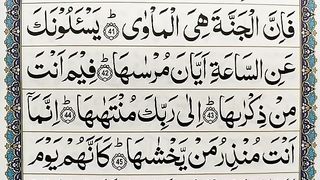 فَاِنَّ الْجَنَّةَ هِيَ الْمَاْوٰى ؕ﴿41﴾ يَسْـَٔلُوْنَكَ
عَنِ السَّاعَةِ اَيَّانَ مُرْسٰىهَا ؕ﴿42﴾ فِيْمَ اَنْتَ
مِنْ ذِكْرٰىهَا ؕ﴿43﴾ اِلٰى رَبِّكَ مُنْتَهٰىهَا ؕ﴿44﴾ اِنَّمَاۤ
اَنْتَ مُنْذِرُ مَنْ يَّخْشٰىهَا ؕ﴿45﴾ كَاَنَّهُمْ يَوْمَ